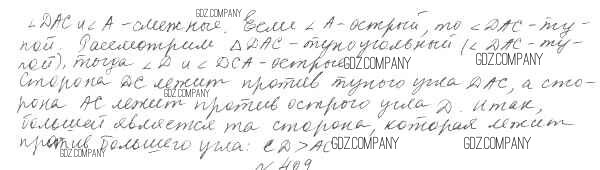 GDZ.COMPANY
∠DAC и ∠A - смежные. Если ∠A - острый, то ∠DAC - ту-
пой. Рассмотрим △DAC - тупоугольный (∠DAC - ту-
пой), тогда ∠D и ∠DCA - острые GDZ.COMPANY GDZ.COMPANY
Сторона DC лежит против тупого угла DAC, а сто-
GDZ.COMPANY
рона AC лежит против острого угла D. Итак,
большей является та сторона, которая лежит
против большего угла: CD > AC GDZ.COMPANY GDZ.COMPANY
GDZ.COMPANY
№ 409